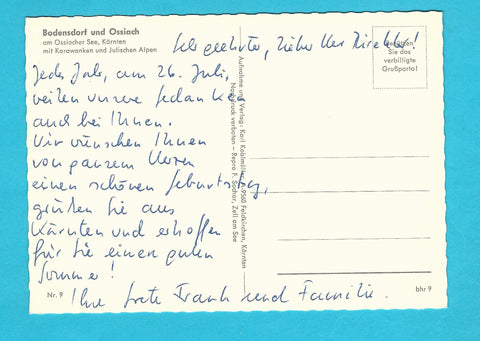 Bodensdorf und Ossiach
am Ossiacher See, Kärnten
mit Karawanken und Julischen Alpen
Sehr geehrter, lieber Herr Direktor!
Benützen
Sie das
verbilligte
Grußporto!
Jedes Jahr, am 26. Juli,
weilen unsere Gedanken
auch bei Ihnen.
Wir wünschen Ihnen
von ganzem Herzen
einen schönen Geburtstag,
grüßen Sie aus
Kärnten und erhoffen
für Sie einen guten
Sommer!
Ihre Frank und Familie.
Aufnahme und Verlag: Karl Kolbmüller, 9560 Feldkirchen, Kärnten
Nachdruck verboten – Repro F. Sochor, Zell am See
Nr. 9
bhr 9